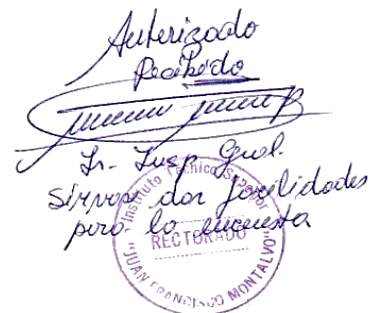 Autorizado
Recibido
Sr. Insp. Gral.
Sírvase dar facilidades
para la encuesta
Instituto Técnico Superior
RECTORADO
"JUAN FRANCISCO MONTALVO"